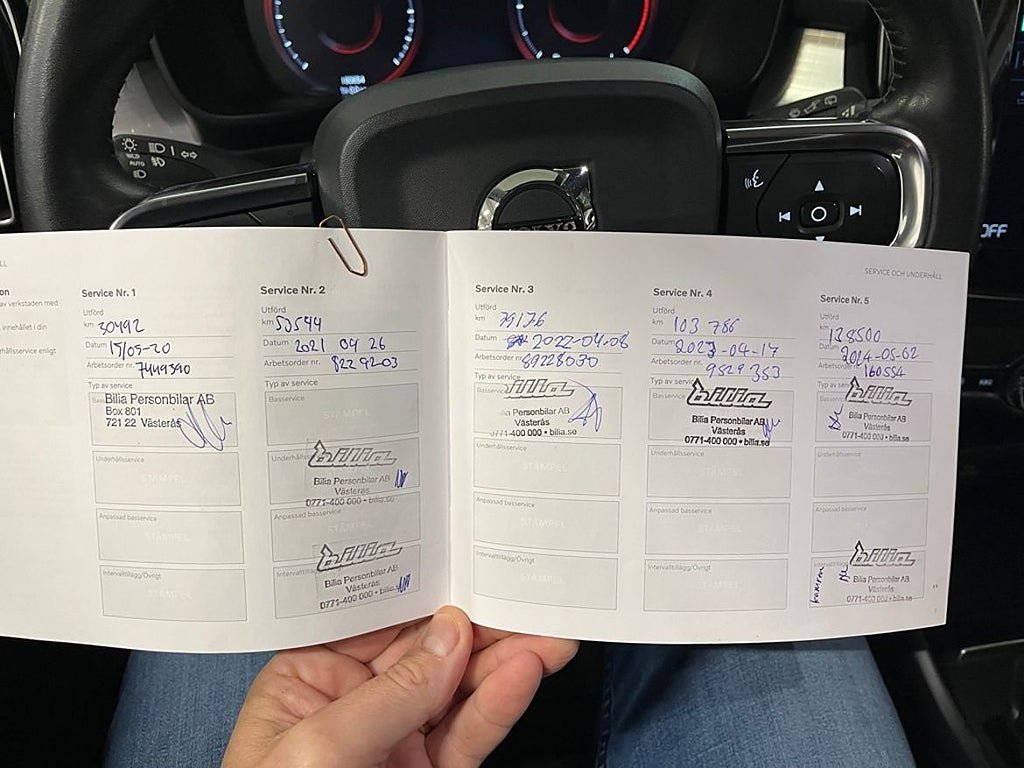 AUTO
OFF
VOLVO
SERVICE OCH UNDERHÅLL
av verkstaden med
innehållet i din
hållsservice enligt
Service Nr. 1
Utförd
km 30492
Datum 15/05-20
Arbetsorder nr. 7449390
Typ av service
Bilia Personbilar AB
Box 801
721 22 Västerås
Underhållsservice
STÄMPEL
Anpassad basservice
STÄMPEL
Intervalltillägg/Övrigt
STÄMPEL
Service Nr. 2
Utförd
km 50544
Datum 2021 04 26
Arbetsorder nr. 82292-03
Typ av service
Basservice
STÄMPEL
Underhålls
bilia
Bilia Personbilar AB
Västerås
0771-400 000 • bilia.se
Anpassad basservice
STÄMPEL
bilia
Intervalltillägg
Bilia Personbilar AB
Västerås
0771-400 000 • bilia.se
Service Nr. 3
Utförd
km 79176
Datum 2022-04-08
Arbetsorder nr. 89228030
Typ av service
Basservice
bilia
Bilia Personbilar AB
Västerås
0771-400 000 • bilia.se
Underhållsservice
STÄMPEL
Anpassad basservice
STÄMPEL
Intervalltillägg/Övrigt
STÄMPEL
Service Nr. 4
Utförd
km 103 786
Datum 2023-04-17
Arbetsorder nr. 9529353
Typ av
Basservice
bilia
Bilia Personbilar AB
Västerås
0771-400 000 • bilia.se
Underhållsservice
STÄMPEL
Anpassad basservice
STÄMPEL
Intervalltillägg/Övrigt
STÄMPEL
Service Nr. 5
Utförd
km 138500
Datum 2024-05-02
Arbetsorder nr. 160554
Typ av
bilia
Bilia Personbilar AB
Västerås
0771-400 000 • bilia.se
Underhållsservice
STÄMPEL
Anpassad basservice
bilia
Bilia Personbilar AB
Västerås
0771-400 000 • bilia.se